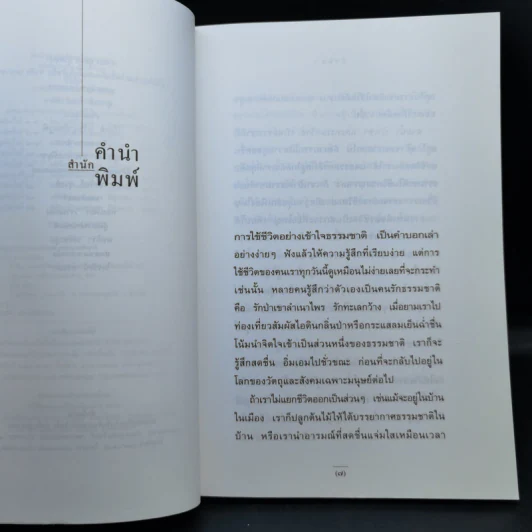 คำนำ
สำนัก
พิมพ์
การใช้ชีวิตอย่างเข้าใจธรรมชาติ เป็นคำบอกเล่า
อย่างง่ายๆ ฟังแล้วให้ความรู้สึกที่เรียบง่าย แต่การ
ใช้ชีวิตของคนเราทุกวันนี้ดูเหมือนไม่ง่ายเลยที่จะกระทำ
เช่นนั้น หลายคนรู้สึกว่าตัวเองเป็นคนรักธรรมชาติ
คือ รักป่าเขาลำเนาไพร รักทะเลกว้าง เมื่อยามเราไป
ท่องเที่ยวสัมผัสไอดินกลิ่นป่าหรือกระแสลมเย็นฉ่ำชื่น
โน้มนำจิตใจเข้าเป็นส่วนหนึ่งของธรรมชาติ เราก็จะ
รู้สึกสดชื่น อิ่มเอมไปชั่วขณะ ก่อนที่จะกลับไปอยู่ใน
โลกของวัตถุและสังคมเฉพาะมนุษย์ต่อไป
ถ้าเราไม่แยกชีวิตออกเป็นส่วนๆ เช่นแม้จะอยู่ในบ้าน
ในเมือง เราก็ปลูกต้นไม้ให้ได้บรรยากาศธรรมชาติใน
บ้าน หรือเรานำอารมณ์ที่สดชื่นแจ่มใสเหมือนเวลา